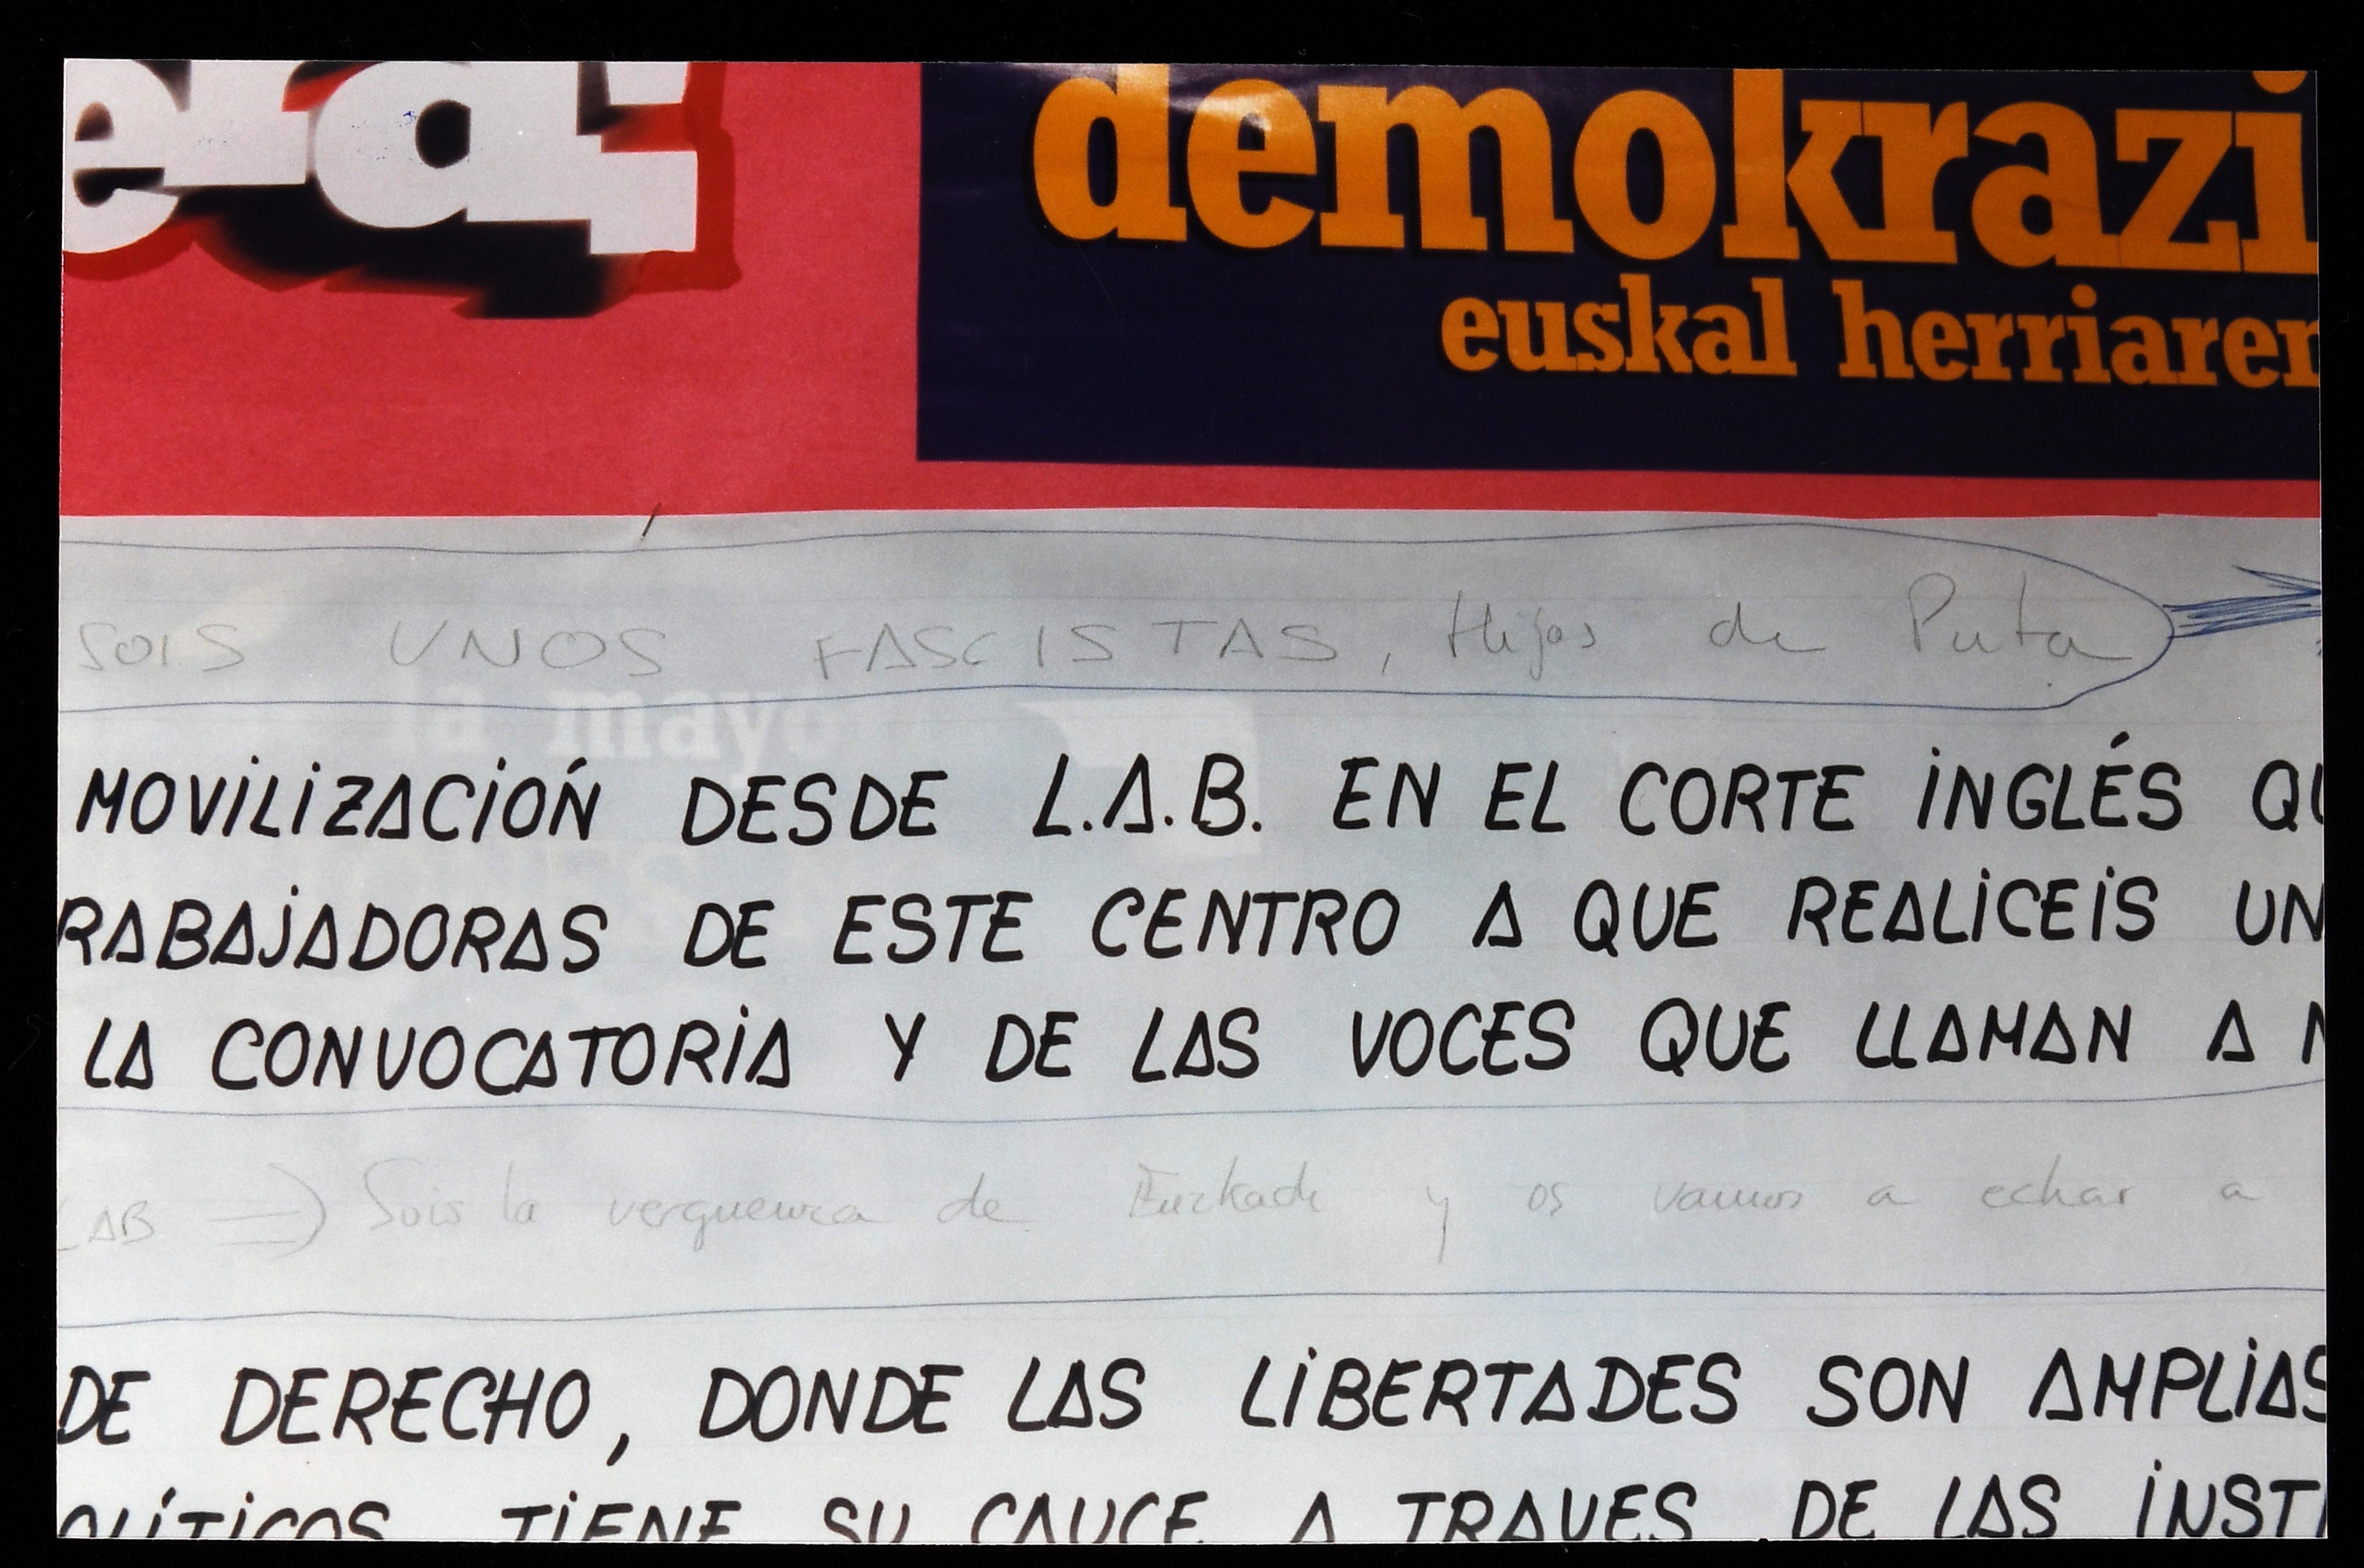 era!
demokrazi
euskal herriaren
SOIS UNOS FASCISTAS, Hijos de Puta
MOVILIZACIÓN DESDE L.A.B. EN EL CORTE INGLÉS QU
RABAJADORAS DE ESTE CENTRO A QUE REALICEIS UN
LA CONVOCATORIA Y DE LAS VOCES QUE LLAMAN A
LAB => Sois la verguenza de Euzkadi y os vamos a echar a
DE DERECHO, DONDE LAS LIBERTADES SON AMPLIAS
OLÍTICOS TIENE SU CAUCE A TRAVES DE LAS INSTI